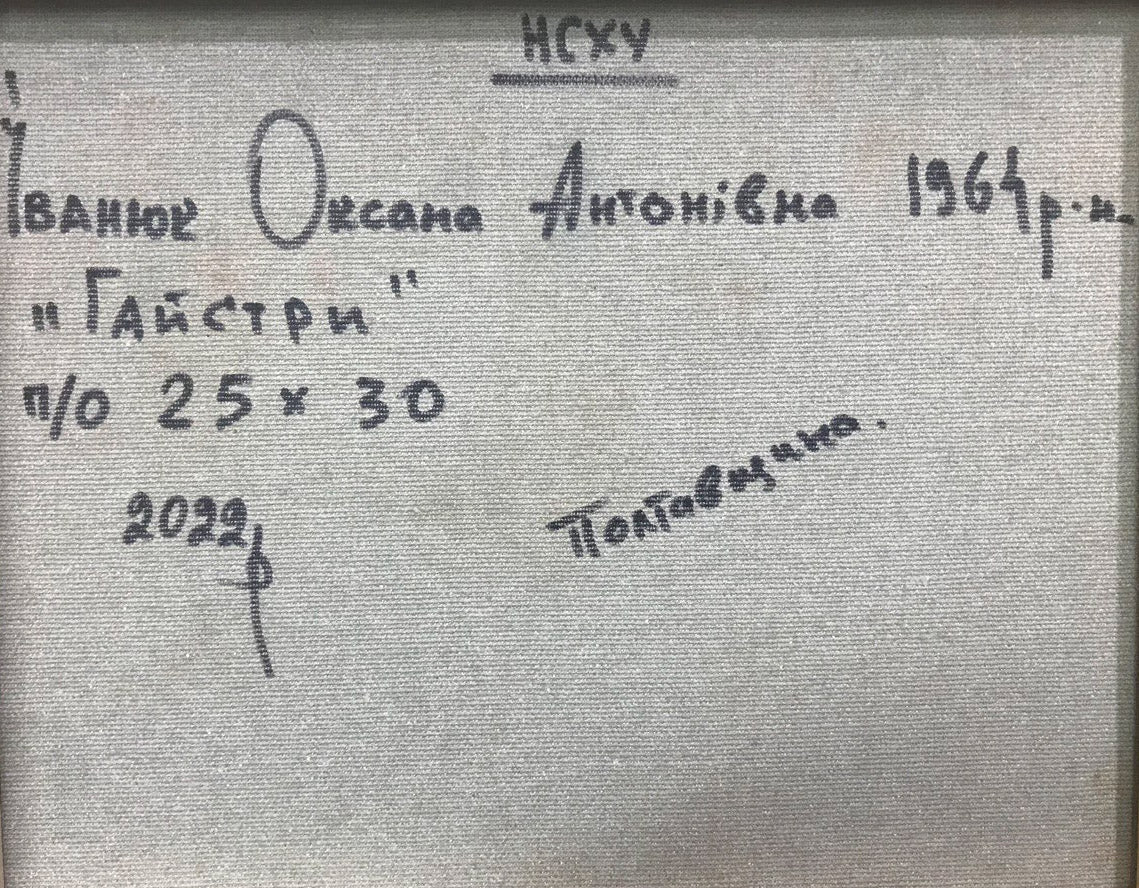 НСХУ
Іванюк Оксана Антонівна 1964 р.н.
„Гайстри"
п/о 25 x 30
2022р
Полтавщина.